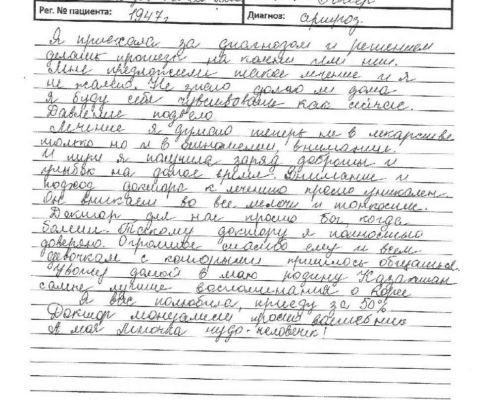 Рег. № пациента: 1947г. Диагноз: артроз.
Я приехала за диагнозом и решением
делать процесс на колени или нет.
Мне предложили такое лечение и я
не жалею. Не знаю долго ли дома
я буду себя чувствовать как сейчас.
Давление подвело
Лечение я думаю теперь не в лекарстве
только но и в отношении, внимании.
И тут я получила заряд доброты и
на долгое время. Внимание и
подход доктора к лечению просто уникален.
Он вникает во все мелочи и тонкости.
Доктор для нас просто Бог, когда
болеем. Такому доктору я полностью
доверяю. Огромное спасибо ему и всем
девочкам с которыми пришлось общаться.
Увожу домой в мою родину Казахстан
самые лучшие воспоминания о Корее
Я вас полюбила, приеду за 50%
Доктор просто волшебник
А моя чудо-человечек!